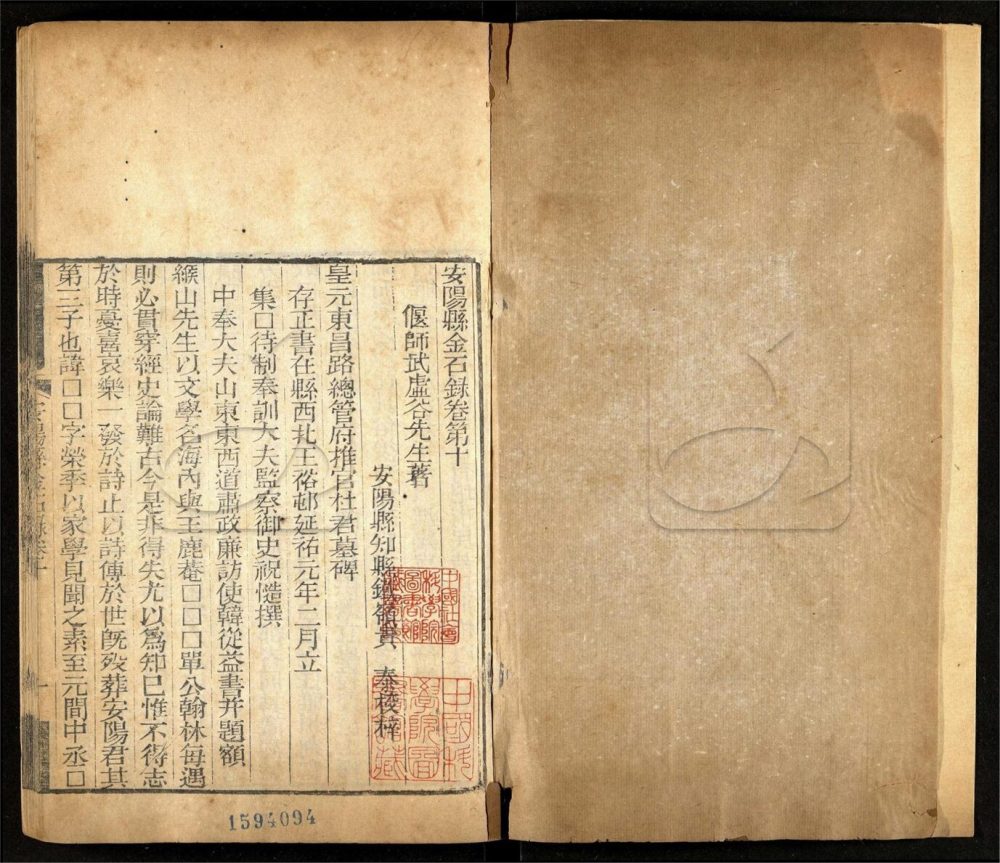 安陽縣金石録卷第十
偃師武虛谷先生著
安陽縣知縣 貴 泰校梓
皇元東昌路總管府推官杜君墓碑
存正書在縣西北王裕邨延祐元年二月立
集囗待制奉訓大夫監察御史祝慥撰
中奉大夫山東東西道肅政廉訪使韓從益書并題額
緱山先生以文學名海內與王鹿菴囗囗囗單公翰林每遇
則必貫穿經史論難古今是非得失尤以爲知已惟不得志
於時憂喜哀樂一發於詩止以詩傳於世旣歿葬安陽君其
第三子也諱囗囗字榮季以家學見聞之素至元間中丞囗
安陽縣金石録卷十
一
1594094